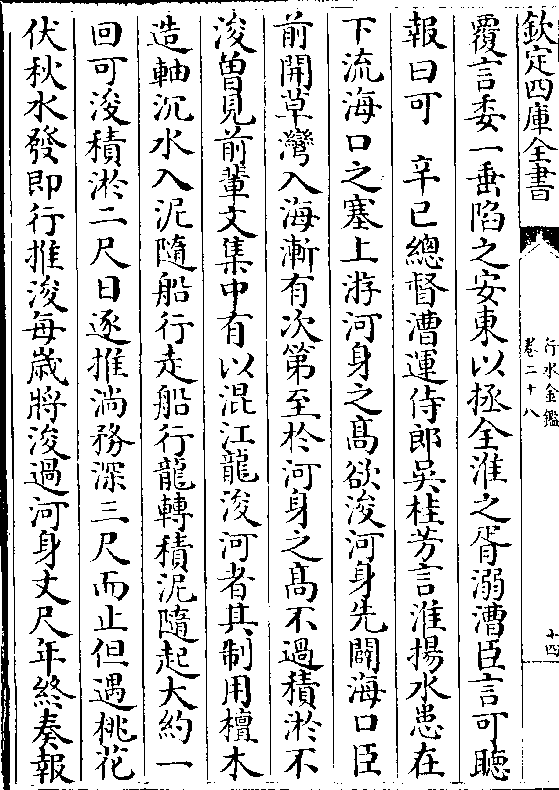 欽定四庫全書
行水金鑑
卷二十八
十四
覆言委一垂陷之安東以拯全淮之胥溺漕臣言可聽
報曰可　辛已總督漕運侍郎吳桂芳言淮揚水患在
下流海口之塞上游河身之髙欲浚河身先闢海口臣
前開草灣入海漸有次第至於河身之髙不過積淤不
浚曽見前輩文集中有以混江龍浚河者其制用檀木
造軸沉水入泥隨船行走船行龍轉積泥隨起大約一
回可浚積淤二尺日逐推淌務深三尺而止但遇桃花
伏秋水發即行推浚每歳將浚過河身丈尺年終奏報